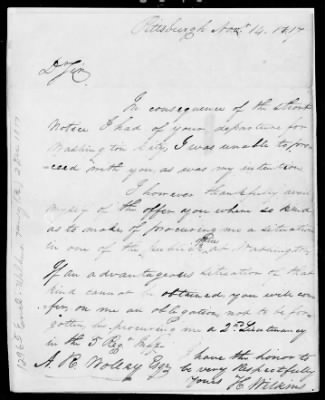 Pittsburgh Nov. 14. 1817
Dr Sir,
In consequence of the short
Notice I had of your departure for
Washington City, I was unable to pro-
ceed with you as was my intention
I however thankfully avail
myself of the offer you where so kind
as to make of procuring me a situation
in one of the public offices at Washington
If an advantageous situation of that
kind cannot be obtained you will con-
fer on me an obligation not to be for-
gotten by procuring me a 2nd Lieutenancy
in the 5 Regt
I have the honor to
A. R. Esqr be very Respectfully
Yours H Wilkins